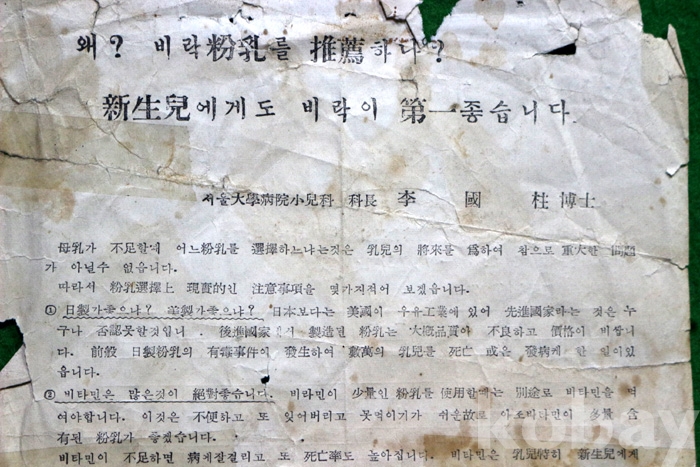 왜? 비락粉乳를 推薦하나?
新生兒에게도 비락이 第一좋습니다
서울大學病院小兒科 科長 李 國 柱 博士
母乳가 不足할때 어느粉乳를 選擇하느냐는것은 乳兒의 將來를 爲하여 참으로 重大한 問題
가 아닐수 없읍니다.
따라서 粉乳選擇上 現實的인 注意事項을 몇가지적어 보겠읍니다.
① 日製가좋으냐? 美製가좋으냐? 日本보다는 美國이 우유工業에 있어 先進國家라는 것은 누
구나 否認못할것입니 . 後進國家 서 製造된 粉乳는 大槪品質이 不良하고 價格이 비쌉니
다. 前般 日製粉乳의 有毒事件이 發生하여 數萬의 乳兒를 死亡 或은 發病케 한 일이있
읍니다.
② 비타민은 많은것이 絕對좋습니다. 비타민이 少量인 粉乳를 使用할때는 別途로 비타민을 먹
여야합니다. 이것은 不便하고 또 잊어버리고 못먹이기가 쉬운故로 비타민이 多量 含
有된 粉乳가 좋겠습니다.
비타민이 不足하면 病에잘걸리고 또 死亡率도 높아집니다. 비타민은 乳兒特히 新生兒에게
kobay